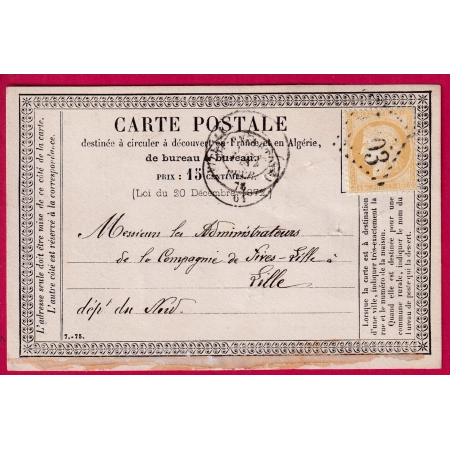 CARTE POSTALE
destinée à circuler à découvert en France et en Algérie,
de bureau à bureau.
PRIX : 15 CENTIMES.
[Loi du 20 Décembre 1872]
L'adresse seule doit être mise de ce côté de la carte.
L'autre côté est réservé à la correspondance.
Messieurs les Administrateurs
de la Compagnie de Fives-Lille à
Lille
dépt du Nord.
Lorsque la carte est à destination
d'une ville, indiquer très-exactement la
rue et le numéro de la maison.
Quand elle est destinée pour une
commune rurale, indiquer le nom du
bureau de poste qui la dessert.
7.-75.
75
61